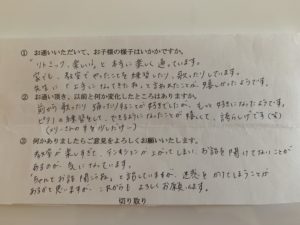 ① お通いいただいて、お子様の様子はいかがですか。
"リトミック、楽しい♪"と本当に楽しく通っています。
家でも、教室でやったことを練習したり、歌ったりしています。
先生に「上手になってきたね」と言われたことが、嬉しかったようです。
② お通い頂き、以前と何か変化したところはありますか。
前から歌ったり踊ったりすることが好きでしたが、もっと好きになったようです。
ピアノの練習をして、できるようになったことが嬉しくて、誇らしげです(笑)
③ 何かありましたらご意見をよろしくお願いいたします。
教室が楽しすぎて、テンションが上がってしまい、お話を聞けてないことが
あるのが、気になっています。
"ちゃんとお話聞こうね"と話していますが、迷惑をかけてしまうことが
あるかと思いますが、これからもよろしくお願いします。
切り取り